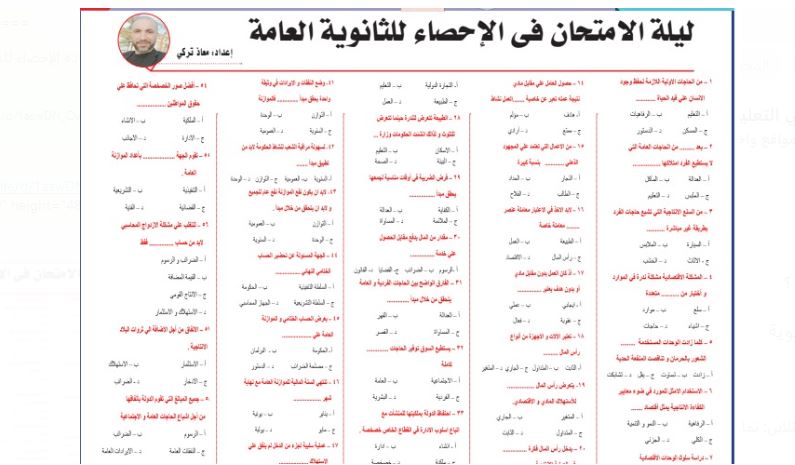 ليلة الامتحان فى الإحصاء للثانوية العامة
إعداد: معاذ تركي
١ – من الحاجات الاولية اللازمة لحفظ وجود
الانسان علي قيد الحياة ............
أ – التعليم ب – الرفاهيات
ج – المسكن د – الدستور
٢ – يعد ........ من الحاجات العامة التي
لا يستطيع الفرد امتلاكها ............
أ – العدالة ب – المأكل
ج – الملبس د – التعليم
٣ – من السلع الانتاجية التي تشبع حاجات الفرد
بطريقة غير مباشرة ........
أ – السيارة ب – الملابس
ج – الاثاث د – الخشب
٤ – المشكلة الاقتصادية مشكلة ندرة في الموارد
و اختيار من ........ متعددة
أ – سلع ب – موارد
ج – اشياء د – حاجات
٥ – كلما زادت الوحدات المستخدمة ......
الشعور بالحرمان و تناقصت المنفعة الحدية
أ – زادت ب – تساوت ج – يقل د – تشابكت
٦ – الاستخدام الامثل للمورد في ضوء معايير
الكفاءة الانتاجية يمثل اقتصاد ......
أ – الرفاهية ب – النمو و التنمية
ج – الكلي د – الجزئي
٧ – دراسة سلوك الوحدات الاقتصادية
١٤ – حصول العامل علي مقابل مادي
نتيجة عمله تعبر عن خاصية ........ العمل نشاط
أ – هادف ب – مؤلم
ج – ممتع د – أرادي
١٥ – من الاعمال التي تعتمد علي المجهود
الذهني .......... بنسبة كبيرة
أ – النجار ب – الحداد
ج – الطالب د – الفلاح
١٦ – لابد الاخذ في الاعتبار معاملة عنصر
...... معاملة خاصة
أ – الطبيعة ب – العمل
ج – رأس المال د – الاقتصاد
١٧ – اذ كان العمل بدون مقابل مادي
أو بدون هدف يعتبر ............
أ – ايجابي ب – عملي
ج – عفوية د – فعال
١٨ – تعتبر الالات و الاجهزة من أنواع
رأس المال ........
أ – الثابت ب – المتداول ج – الجاري د – المتغير
١٩ – يتعرض رأس المال ............
للاستهلاك المادي و الاقتصادي
أ – المتغير ب – الجاري
ج – المتداول د – الثابت
٢٠ – يدخل رأس المال فكرة ............
أ – التجارة الدولية ب – التعليم
ج – الطبيعة د – العمل
٢٨ – الطبيعة تتعرض للندرة حينما تتعرض
للتلوث و لذلك انشئت الحكومات وزارة ..
أ – الاسكان ب – التعليم
ج – البيئة د – الصحة
٢٩ – فرض الضريبة في أوقات مناسبة لجمعها
يحقق مبدأ ............
أ – الكفاية ب – العدالة
ج – الملائمة د – المساواة
٣٠ – مقدار من المال يدفع مقابل الحصول
علي خدمة ............
أ – الرسوم ب – الضرائب ج – القضايا د – القانون
٣١ – الفارق الواضح بين الحاجات الفردية و العامة
يتحقق من خلال مبدأ ............
أ – العدالة ب – القهر
ج – المساواة د – القصر
٣٢ – يستطيع السوق توفير الحاجات ............
كاملة
أ – الاجتماعية ب – العامة
ج – الفردية د – البشرية
٣٣ – احتفاظ الدولة بملكيتها للمنشآت مع
اتباع اسلوب الادارة في القطاع الخاص خصخصة .
أ – انشاء ب – ادارة
ج – ملكية د – خصخصة
٤١ – وضع النفقات و الايرادات في وثيقة
واحدة يحقق مبدأ ............ للموازنة
أ – التوازن ب – الوحدة
ج – السنوية د – العمومية
٤٢ – لسهولة مراقبة الشعب لنشاط الحكومة لابد من
تطبيق مبدأ ............
أ – السنوية ب – العمومية ج – التوازن د – الوحدة
٤٣ – لابد ان يكون نفع الموازنة نفع عام للجميع
و لابد ان يتحقق من خلال مبدأ .
أ – التوازن ب – العمومية
ج – الوحدة د – السنوية
٤٤ – الجهة المسئولة عن تحضير الحساب
الختامي النهائي ............
أ – السلطة التنفيذية ب – الحكومة
ج – السلطة التشريعية د – الجهاز المحاسبي
٤٥ – يعرض الحساب الختامي و الموازنة
العامة علي ............
أ – الحكومة ب – البرلمان
ج – مصلحة الضرائب د – الدستور
٤٦ – تنتهي السنة المالية للموازنة العامة مع نهاية
شهر ............
أ – يناير ب – يونية
ج – مايو د – يولية
٤٧ – عملية سلبية لجزء من الدخل لم ينفق علي
الاستهلاك ............
٥٤ – أفضل صور الخصخصة التي تحافظ علي
حقوق المواطنين ............
أ – الملكية ب – الانشاء
ج – الادارة د – الاجانب
٥٥ – تقوم الجهة ............ بأعداد الموازنة
العامة .
أ – التنفيذية ب – التشريعية
ج – القضائية د – النيابة
٥٦ – للتغلب علي مشكلة الازدواج المحاسبي
لابد من حساب ............ فقط
أ – الضرائب و الرسوم
ب – القيمة المضافة
ج – الانتاج القومي
د – الاستهلاك و الاستثمار
– الانفاق من اجل الاضافة الي ثروات البلاد
الانتاجية .
أ – الاستثمار ب – الاستهلاك
ج – الادخار د – الضرائب
– جميع المبالغ التي تقوم الدولة بانفاقها
من أجل اشباع الحاجات العامة و الاجتماعية
أ – الرسوم ب – الضرائب
ج – النفقات العامة د – الايرادات العامة